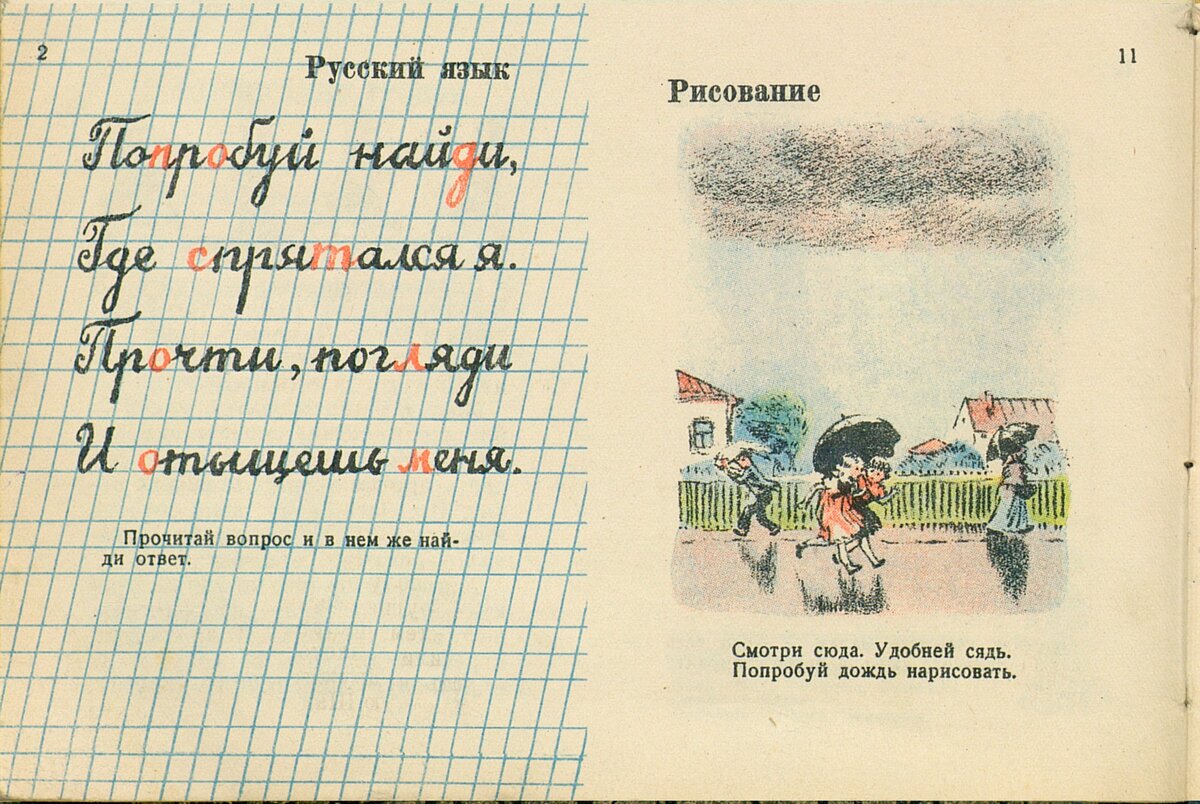 2
Русский язык
Попробуй найди,
Где спрятался я.
Прочти, погляди
И отыщешь меня.
Прочитай вопрос и в нем же най-
ди ответ.
11
Рисование
Смотри сюда. Удобней сядь.
Попробуй дождь нарисовать.